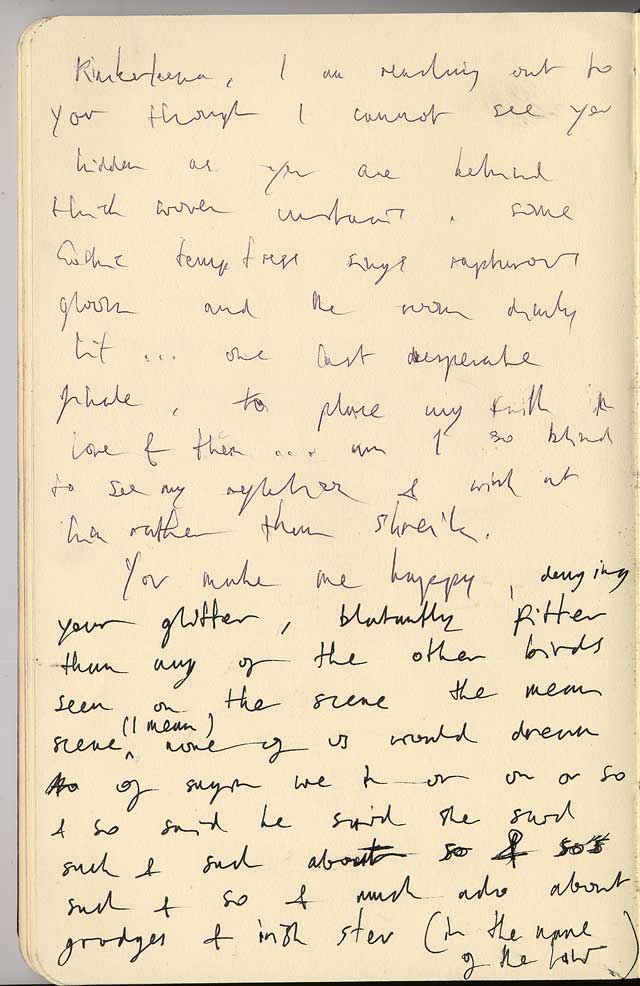 I am reaching out to
you though I cannot see you
hidden as you are behind
thick woven . some
Gothic temptress sings rapturous
gloom and the room dimly
lit ... one last desperate
finale , to place my faith in
love & then ... am I so blind
to see my & wink at
her rather than shreik.
You make me happy , denying
your glitter , blatantly fitter
than any of the other birds
seen on the scene the mean
scene (I mean) none of us would dream
of sayin we or on or so
& so said he said she said
such & such about so & so's
such & so & much ado about
grudges & (in the name
of the